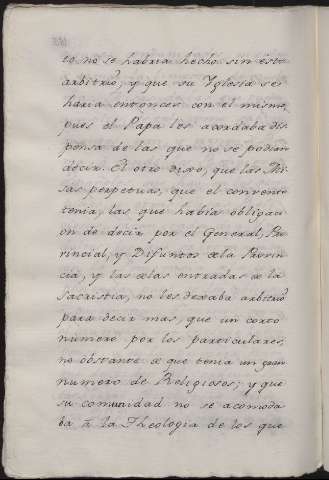 to no se habria hecho sin este
arbitrio, y que su Yglesia se
haria entonces con el mismo,
pues el Papa les acordaba dis
pensa de las que no se podian
decir. El otro dixo, que las Mi
sas perpetuas, que el convento
tenia, las que habia obligaci
on de decir por el General, Pro
vincial, y Difuntos de la Provin
cia, y las de las entradas de la
Sacristia, no les dexaba arbitrio
para decir mas, que un corto
numero por los particulares,
no obstante de que tenia un gran
numero de Religiosos; y que
su comunidad no se acomoda
ba à la Theologia de los que